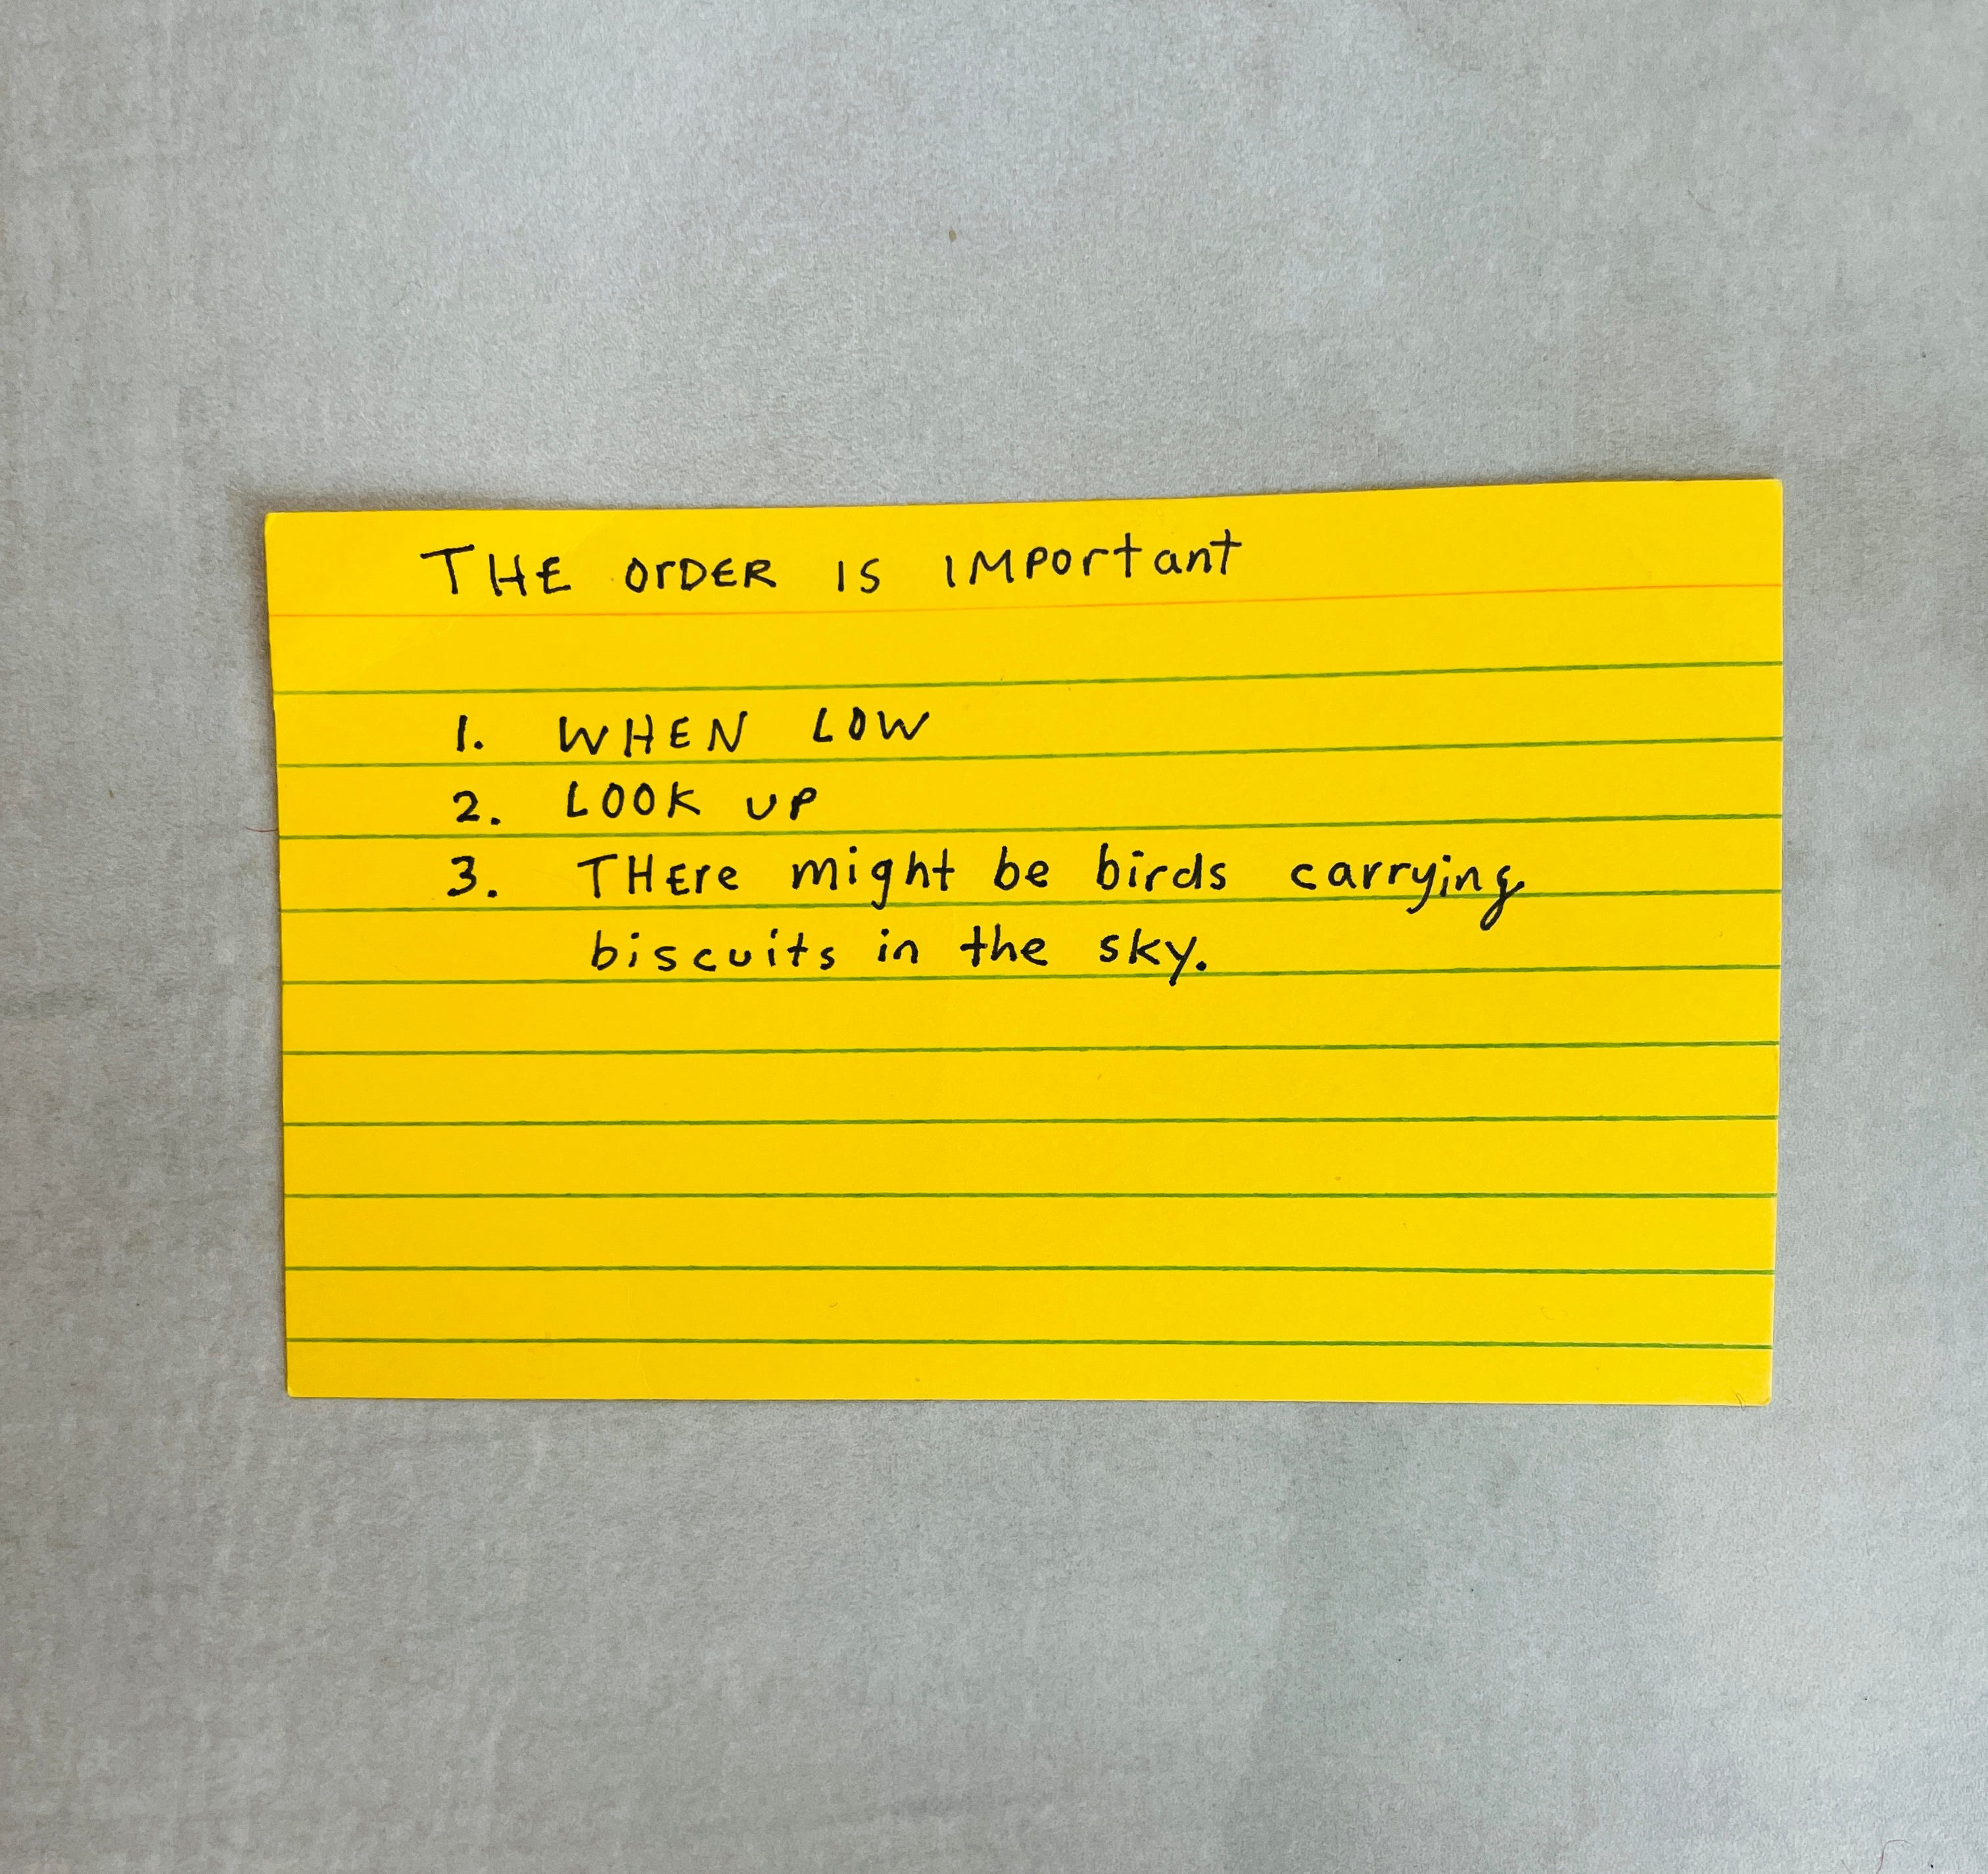 THE OrDER IS IMPortant
1. WHEN LOW
2. LOOK UP
3. THEre might be birds carrying
biscuits in the sky.